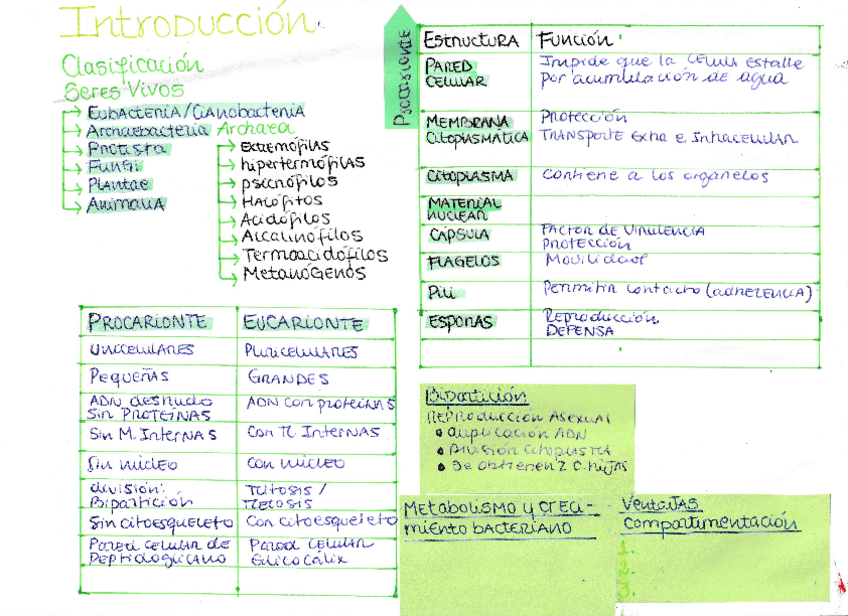 Introducción
Clasificación
Seres Vivos
→ Eubacteria/Cianobacteria
→ Archaebacteria Archaea
→ Protista
→ Fungi
→ Plantae
→ Animalia
→ Extremófilas
→ hipertermófilas
→ psicrófilos
→ Halófitos
→ Acidófilos
→ Alcalinófilos
→ Termoacidófilos
→ Metanógenos
PROCARIONTE EUCARIONTE
UNICELULARES PLURICELULARES
Pequeñas GRANDES
ADN desnudo ADN con proteínas
Sin PROTEÍNAS
Sin M. Internas Con M. Internas
Sin núcleo Con núcleo
división: Mitosis /
Bipartición Meiosis
Sin citoesqueleto Con citoesqueleto
Pared celular de Pared celular
Peptidoglucano Glicocálix
Procarionte
Estructura Función
PARED Impide que la célula estalle
CELULAR por acumulación de agua
MEMBRANA Protección
Citoplasmática TRANSPORTE Extra e Intracelular
Citoplasma Contiene a los organelos
MATERIAL
NUCLEAR
CÁPSULA FACTOR DE VIRULENCIA
PROTECCIÓN
FLAGELOS Movilidad
Pili Permitir contacto (adherencia)
Esporas Reproducción
DEFENSA
Bipartición
REPRODUCCIÓN ASEXUAL
• Duplicación ADN
• División citoplasma
• Se obtienen 2 c. hijas
Metabolismo y creci-
miento bacteriano
Ventajas
compartimentación
1.
2.
3.